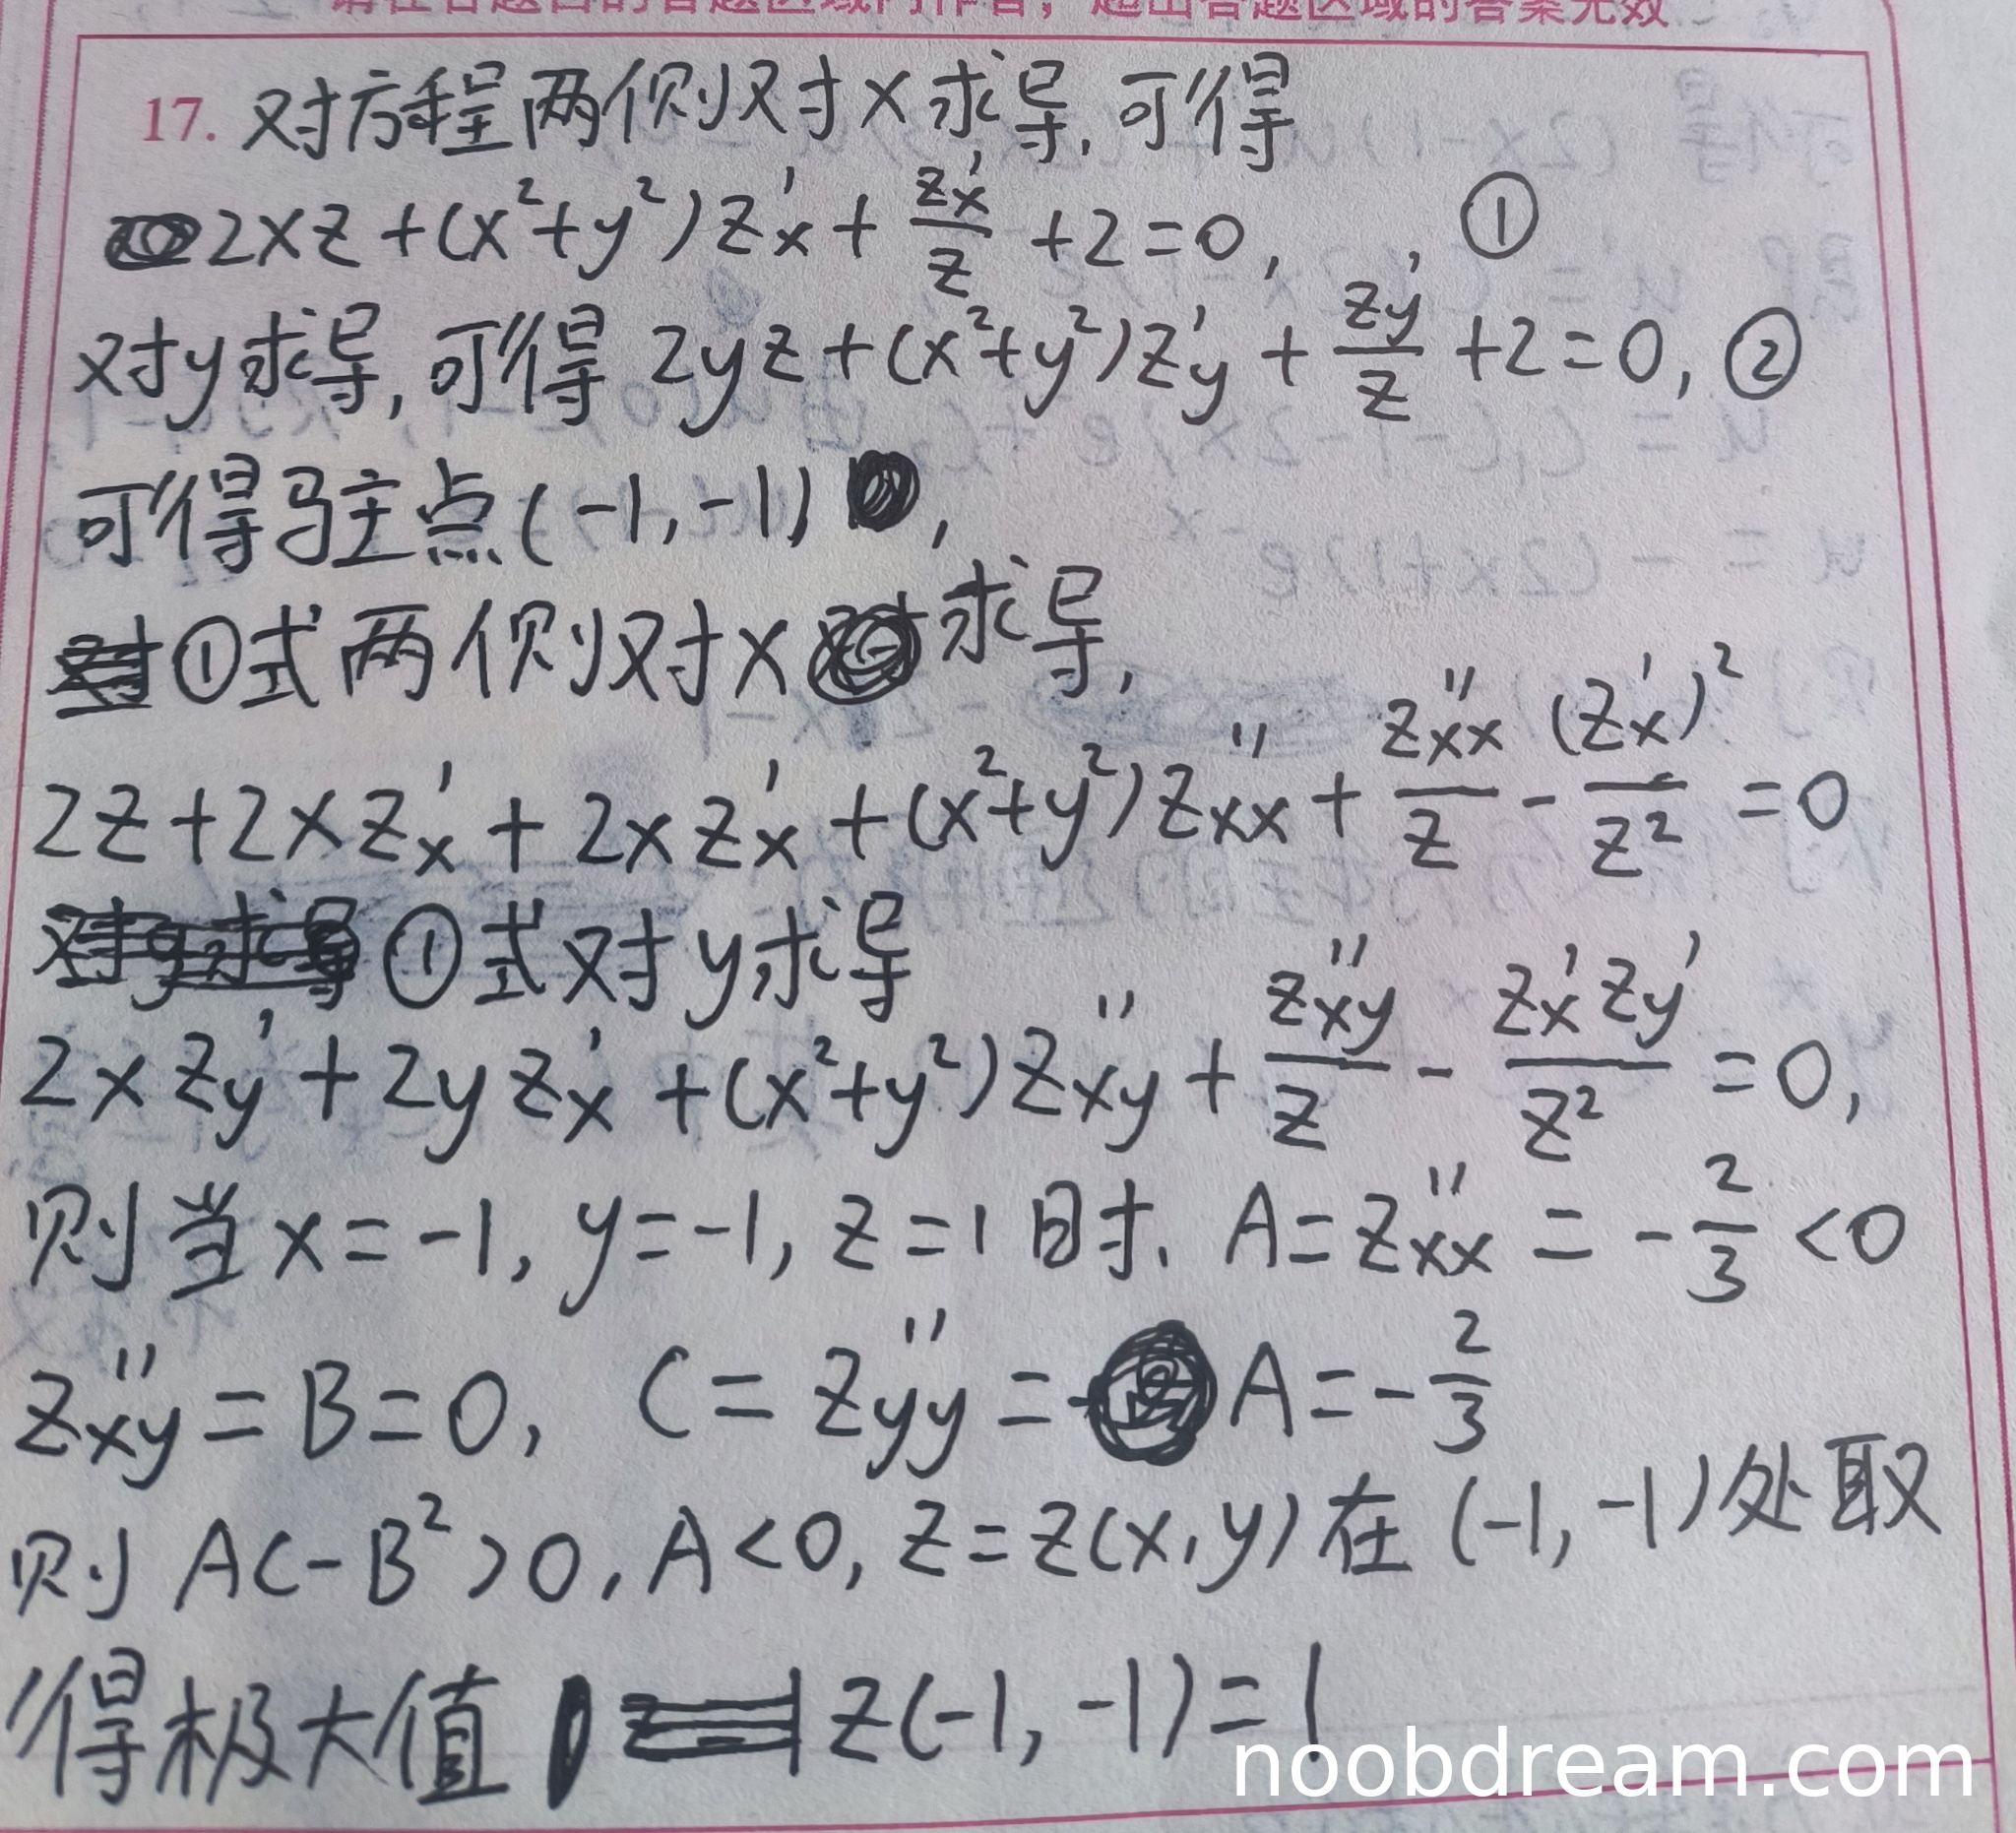 请在各题目的答题区域内作答，超出答题区域的答案无效
17. 对方程两侧对x求得导,可得
2xz+(x²+y²)z'x+z'x/z+2=0, ①
对y求导,可得 2yz+(x²+y²)z'y+z'y/z+2=0, ②
可得驻点(-1,-1),
①式两侧对x求导,
2z+2xz'x+2xz'x+(x²+y²)z''xx+z''xx/z-(z'x)²/z²=0
①式对y求导
2xz'y+2yz'x+(x²+y²)z''xy+z''xy/z-z'xz'y/z²=0,
则当x=-1,y=-1,z=1时, A=z''xx=-2/3<0
z''xy=B=0, C=z''yy=A=-2/3
则 AC-B²>0,A<0,z=z(x,y)在(-1,-1)处取
得极大值 z(-1,-1)=1
noobdream.com